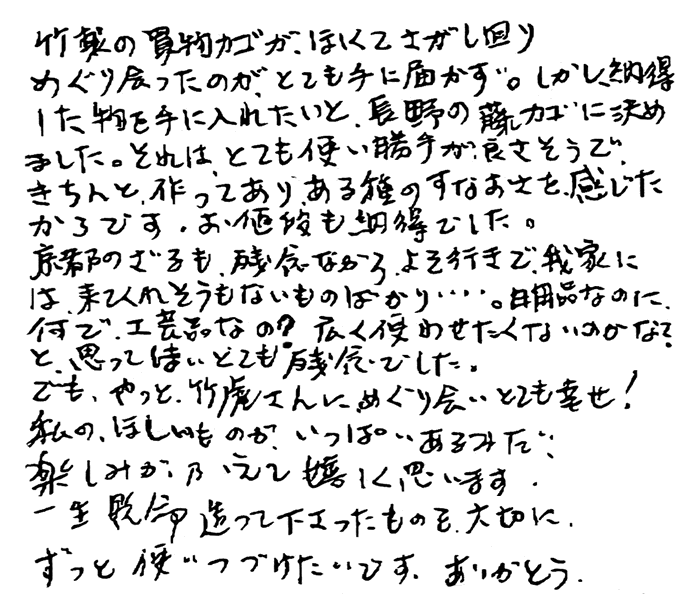 竹製の買物カゴが、ほしくてさがし回り
めぐり会ったのが、とても手に届かず。しかし、納得
した物を手に入れたいと、長野の藤カゴに決め
ました。それは、とても使い勝手が良さそうで、
きちんと、作ってあり、ある種のすなおさを、感じた
からです。お値段も納得でした。
京都のざるも、残念ながら、よそ行きで、我家に
は、来てくれそうもないものばかり・・・・。日用品なのに、
何で、工芸品なの？広く使わせたくないのかなぁ？
と、思ってしまいとても残念でした。
でも、やっと、竹虎さんに、めぐり会いとても幸せ！
私の、ほしいものが、いっぱいあるみたい
楽しみが、ふえて嬉しく思います。
一生懸命造って下さったものを、大切に、
ずっと使いつづけたいです。ありがとう。